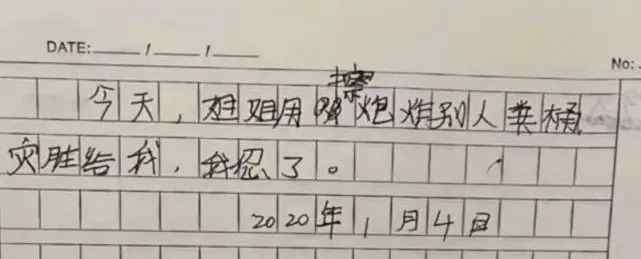 DATE: ____/____/____
No:
今天，姐姐用擦炮炸别人粪桶
灾胜给我，我忍了。
2020年1月4日